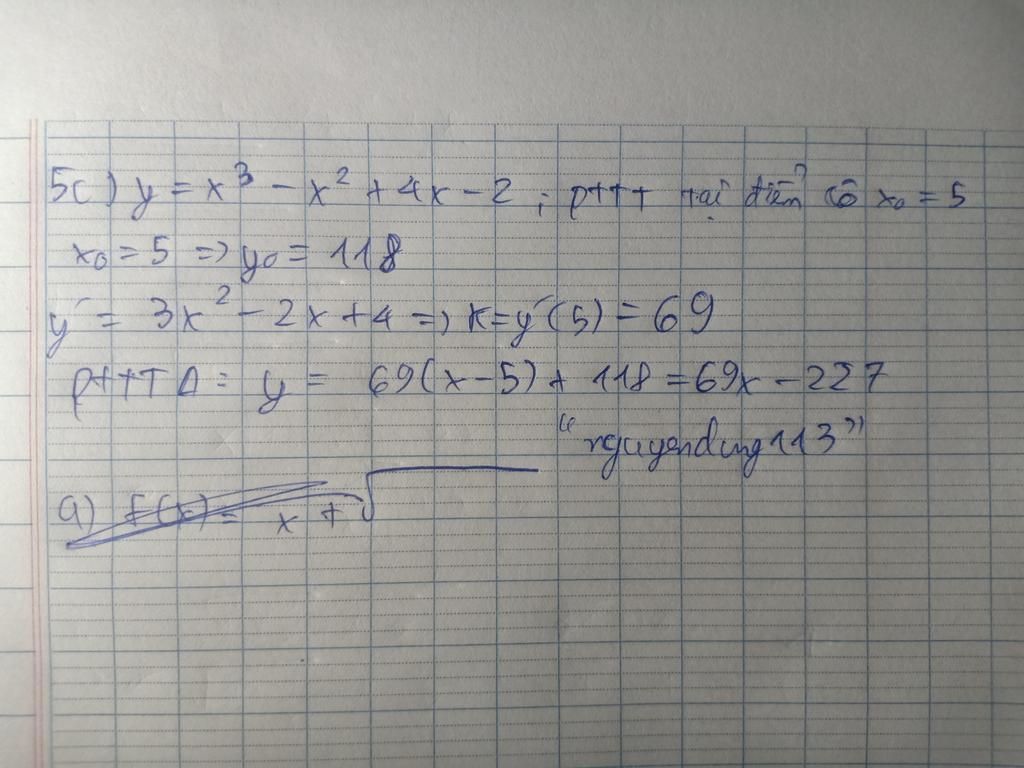 5c) y = x³ - x² + 4x - 2 ; pttt tại điểm có x₀ = 5
x₀ = 5 => y₀ = 118
y' = 3x² - 2x + 4 => K = y'(5) = 69
pttT Δ = y = 69(x - 5) + 118 = 69x - 227
"nguyendung113"
a) f(x) = x + √